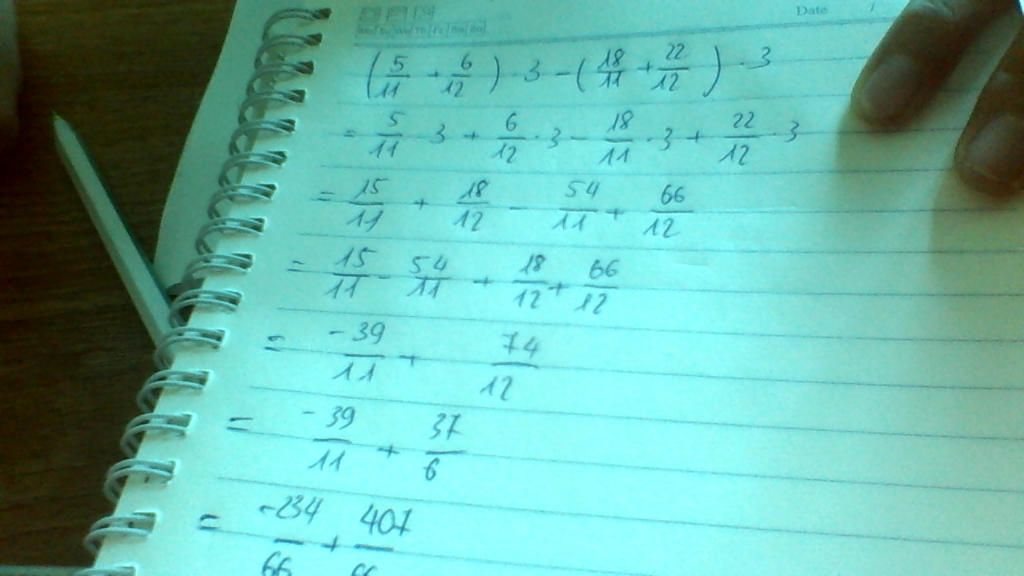 Date /
(5/11 + 6/12) · 3 - (18/11 + 22/12) · 3
= 5/11 · 3 + 6/12 · 3 - 18/11 · 3 + 22/12 · 3
= 15/11 + 18/12 - 54/11 + 66/12
= 15/11 - 54/11 + 18/12 + 66/12
= -39/11 + 74/12
= -39/11 + 37/6
= -234/66 + 407/66